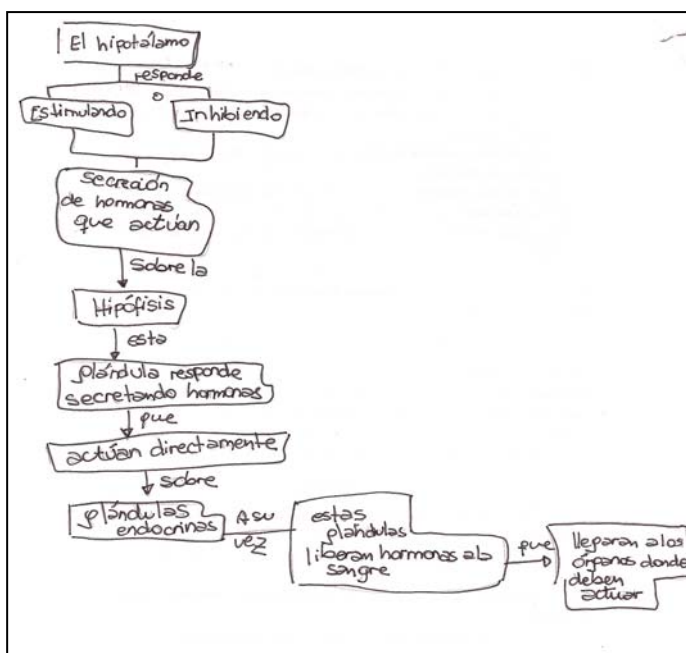 El hipotálamo
responde
o
Estimulando
Inhibiendo
secreción
de hormonas
que actúan
sobre la
Hipófisis
esta
glándula responde
secretando hormonas
que
actúan directamente
sobre
glándulas
endocrinas
A su
vez
estas
glándulas
liberan hormonas a la
sangre
que
llegaran a los
órganos donde
deben
actuar